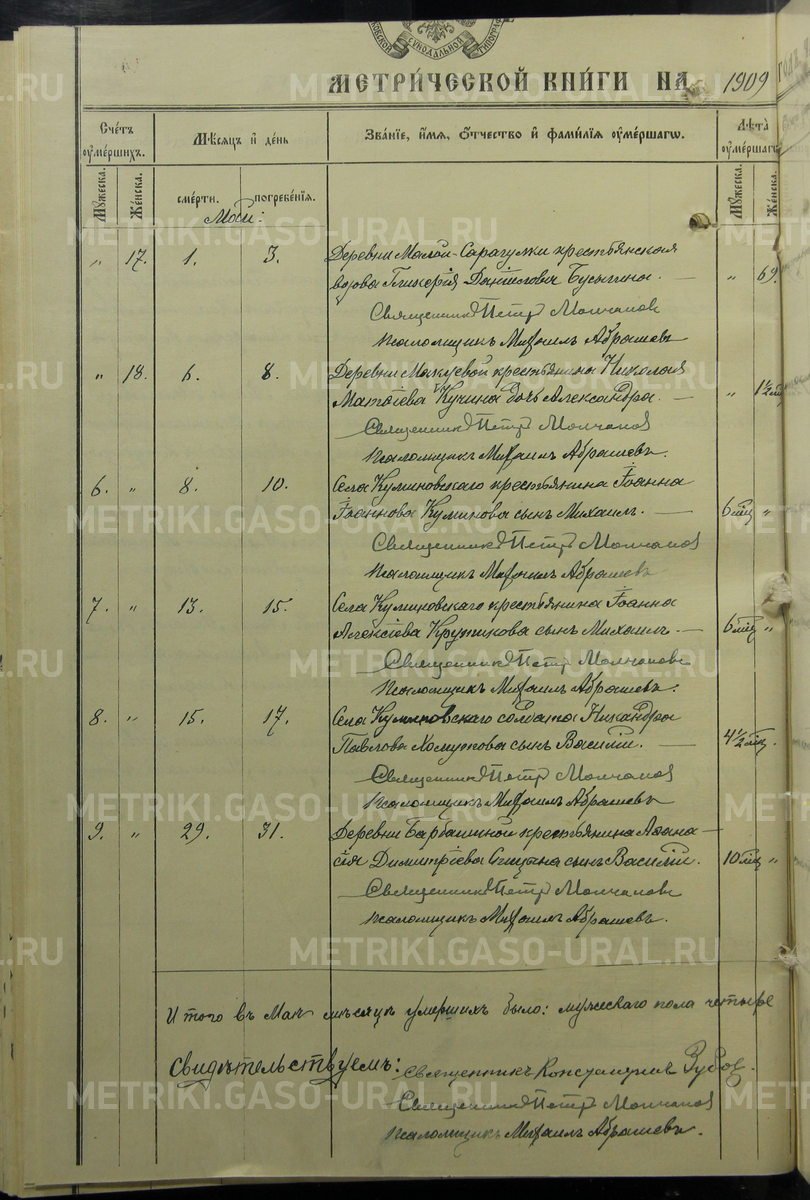 СѴНОДАЛЬНОЙ
МЕТРИ́ЧЕСКОЙ КНИ́ГИ НА 1909
Сче́тъ ѹме́ршихъ.
Мѣ́сяцъ и де́нь
Зва́нїе, и҆́мя, ѻ҆́тчество и҆ фами́лїя ѹме́ршагѡ.
Лѣ́та ѹме́ршагѡ
Мꙋ́жеска.
Же́нска.
сме́рти.
погребе́нїя.
Мꙋ́жеска.
Же́нска.
Май:
" 17. 1. 3. Деревни Малой-Сарагулки крестьянская
вдова Гликерія Даніилова Бусыгина. — " 69.
Священникъ Петръ Молчановъ
Псаломщикъ Михаилъ Абрашевъ
" 18. 6. 8. Деревни Макуевой крестьянина Николая
Матѳіева Кучина дочь Александра. — " 1½ мѣс
Священникъ Петръ Молчановъ
Псаломщикъ Михаилъ Абрашевъ.
6. " 8. 10. Села Куминовскаго крестьянина Іоанна
Іоаннова Куминова сынъ Михаилъ. — 6 мѣс "
Священникъ Петръ Молчановъ
Псаломщикъ Михаилъ Абрашевъ
7. " 13. 15. Села Куминовскаго крестьянина Іоанна
Алексіева Крутикова сынъ Михаилъ. — 6 мѣс "
Священникъ Петръ Молчановъ
Псаломщикъ Михаилъ Абрашевъ.
8. " 15. 17. Села Куминовскаго солдата Никандра
Павлова Хомутова сынъ Василій. — 4½ мѣс.
Священникъ Петръ Молчановъ
Псаломщикъ Михаилъ Абрашевъ
9. " 29. 31. Деревни Барбашиной крестьянина Аѳана-
сія Димитріева сынъ Василій. 10 мѣс "
Священникъ Петръ Молчановъ
Псаломщикъ Михаилъ Абрашевъ.
Итого въ Маѣ мѣсяцѣ умершихъ было: мужескаго пола четыре
Свидѣтельствуемъ: Священникъ Константинъ Зубов.
Священникъ Петръ Молчановъ
Псаломщикъ Михаилъ Абрашевъ.
METRIKI.GASO-URAL.RU